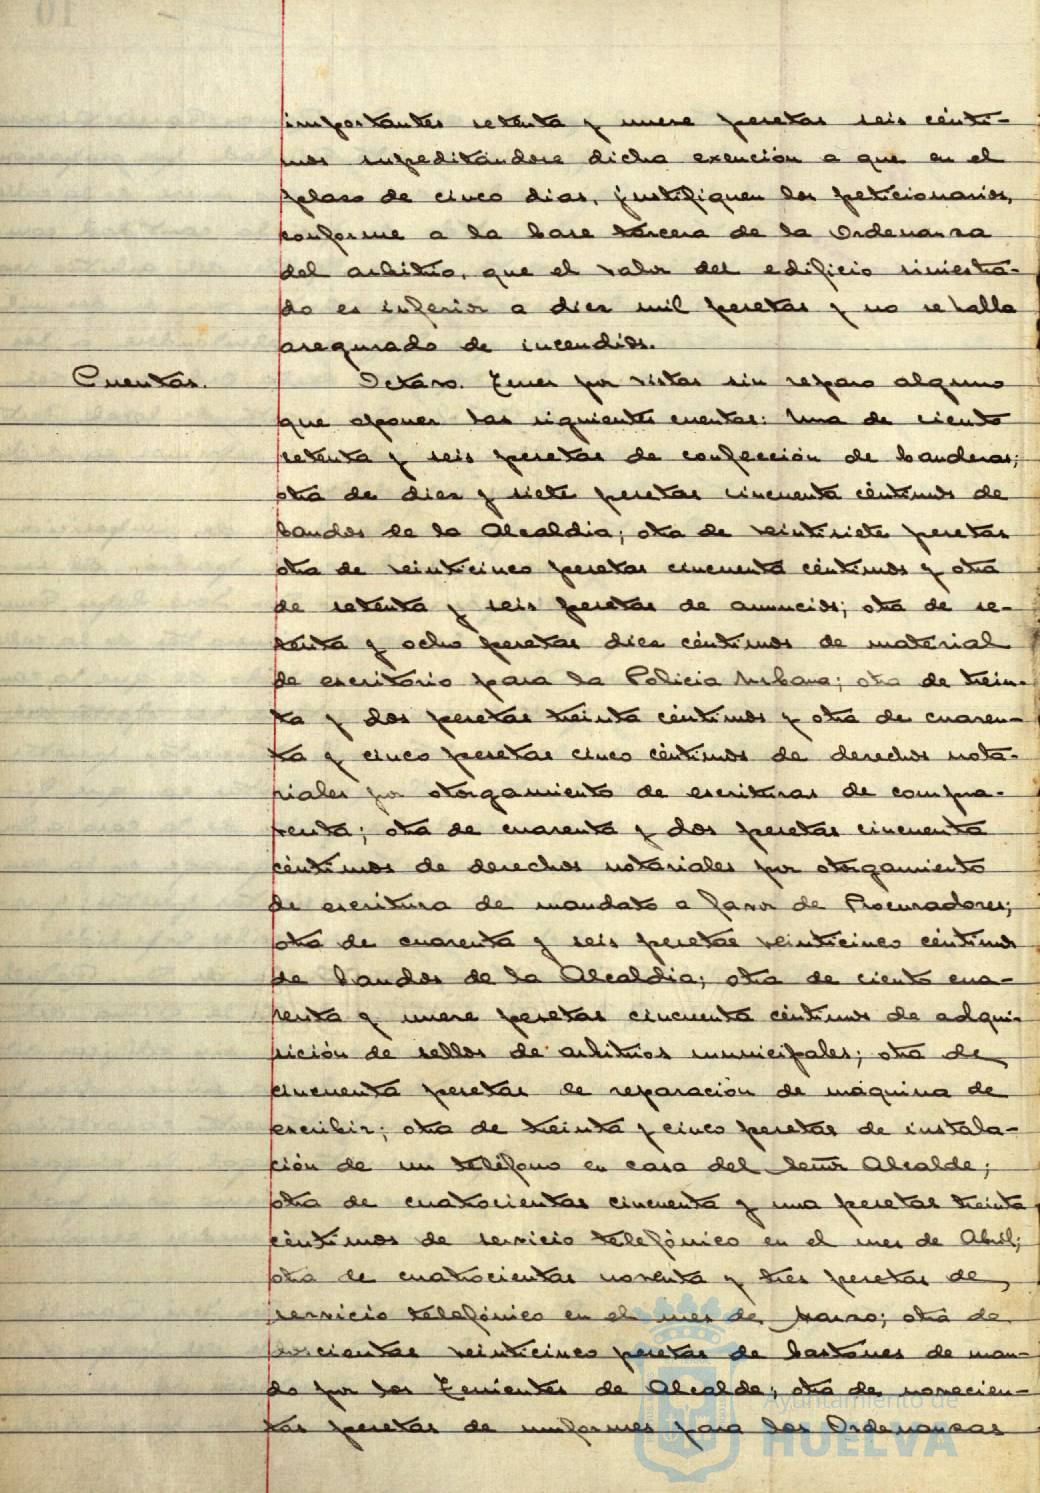 importantes setenta y nueve pesetas seis cénti-
mos supeditándose dicha exención a que en el
plazo de cinco dias, justifiquen los peticionarios,
conforme a la base tercera de la Ordenanza
del arbitrio, que el valor del edificio siniestra-
do es inferior a diez mil pesetas y no se halla
asegurado de incendios.
Cuentas. Octavo. Tener por vistas sin reparo alguno
que oponer las siguientes cuentas: Una de ciento
setenta y seis pesetas de confección de banderas;
otra de diez y siete pesetas cincuenta céntimos de
bandos de la Alcaldia; otra de veintisiete pesetas
otra de veinticinco pesetas cincuenta céntimos y otra
de setenta y seis pesetas de anuncios; otra de se-
tenta y ocho pesetas diez céntimos de material
de escritorio para la Policia Urbana; otra de trein-
ta y dos pesetas treinta céntimos y otra de cuaren-
ta y cinco pesetas cinco céntimos de derechos nota-
riales por otorgamiento de escrituras de compra-
venta; otra de cuarenta y dos pesetas cincuenta
céntimos de derechos notariales por otorgamiento
de escritura de mandato a favor de Procuradores;
otra de cuarenta y seis pesetas veinticinco céntimos
de bandos de la Alcaldia; otra de ciento cua-
renta y nueve pesetas cincuenta céntimos de adqui-
sición de sellos de arbitrios municipales; otra de
cincuenta pesetas de reparación de máquina de
escribir; otra de treinta y cinco pesetas de instala-
ción de un teléfono en casa del Señor Alcalde;
otra de cuatrocientas cincuenta y una pesetas treinta
céntimos de servicio telefónico en el mes de Abril;
otra de cuatrocientas noventa y tres pesetas de
servicio telefónico en el mes de Marzo; otra de
doscientas veinticinco pesetas de bastones de man-
do por los Tenientes de Alcalde; otra de novecien-
tas pesetas de uniformes para los Ordenanzas
Ayuntamiento de
HUELVA